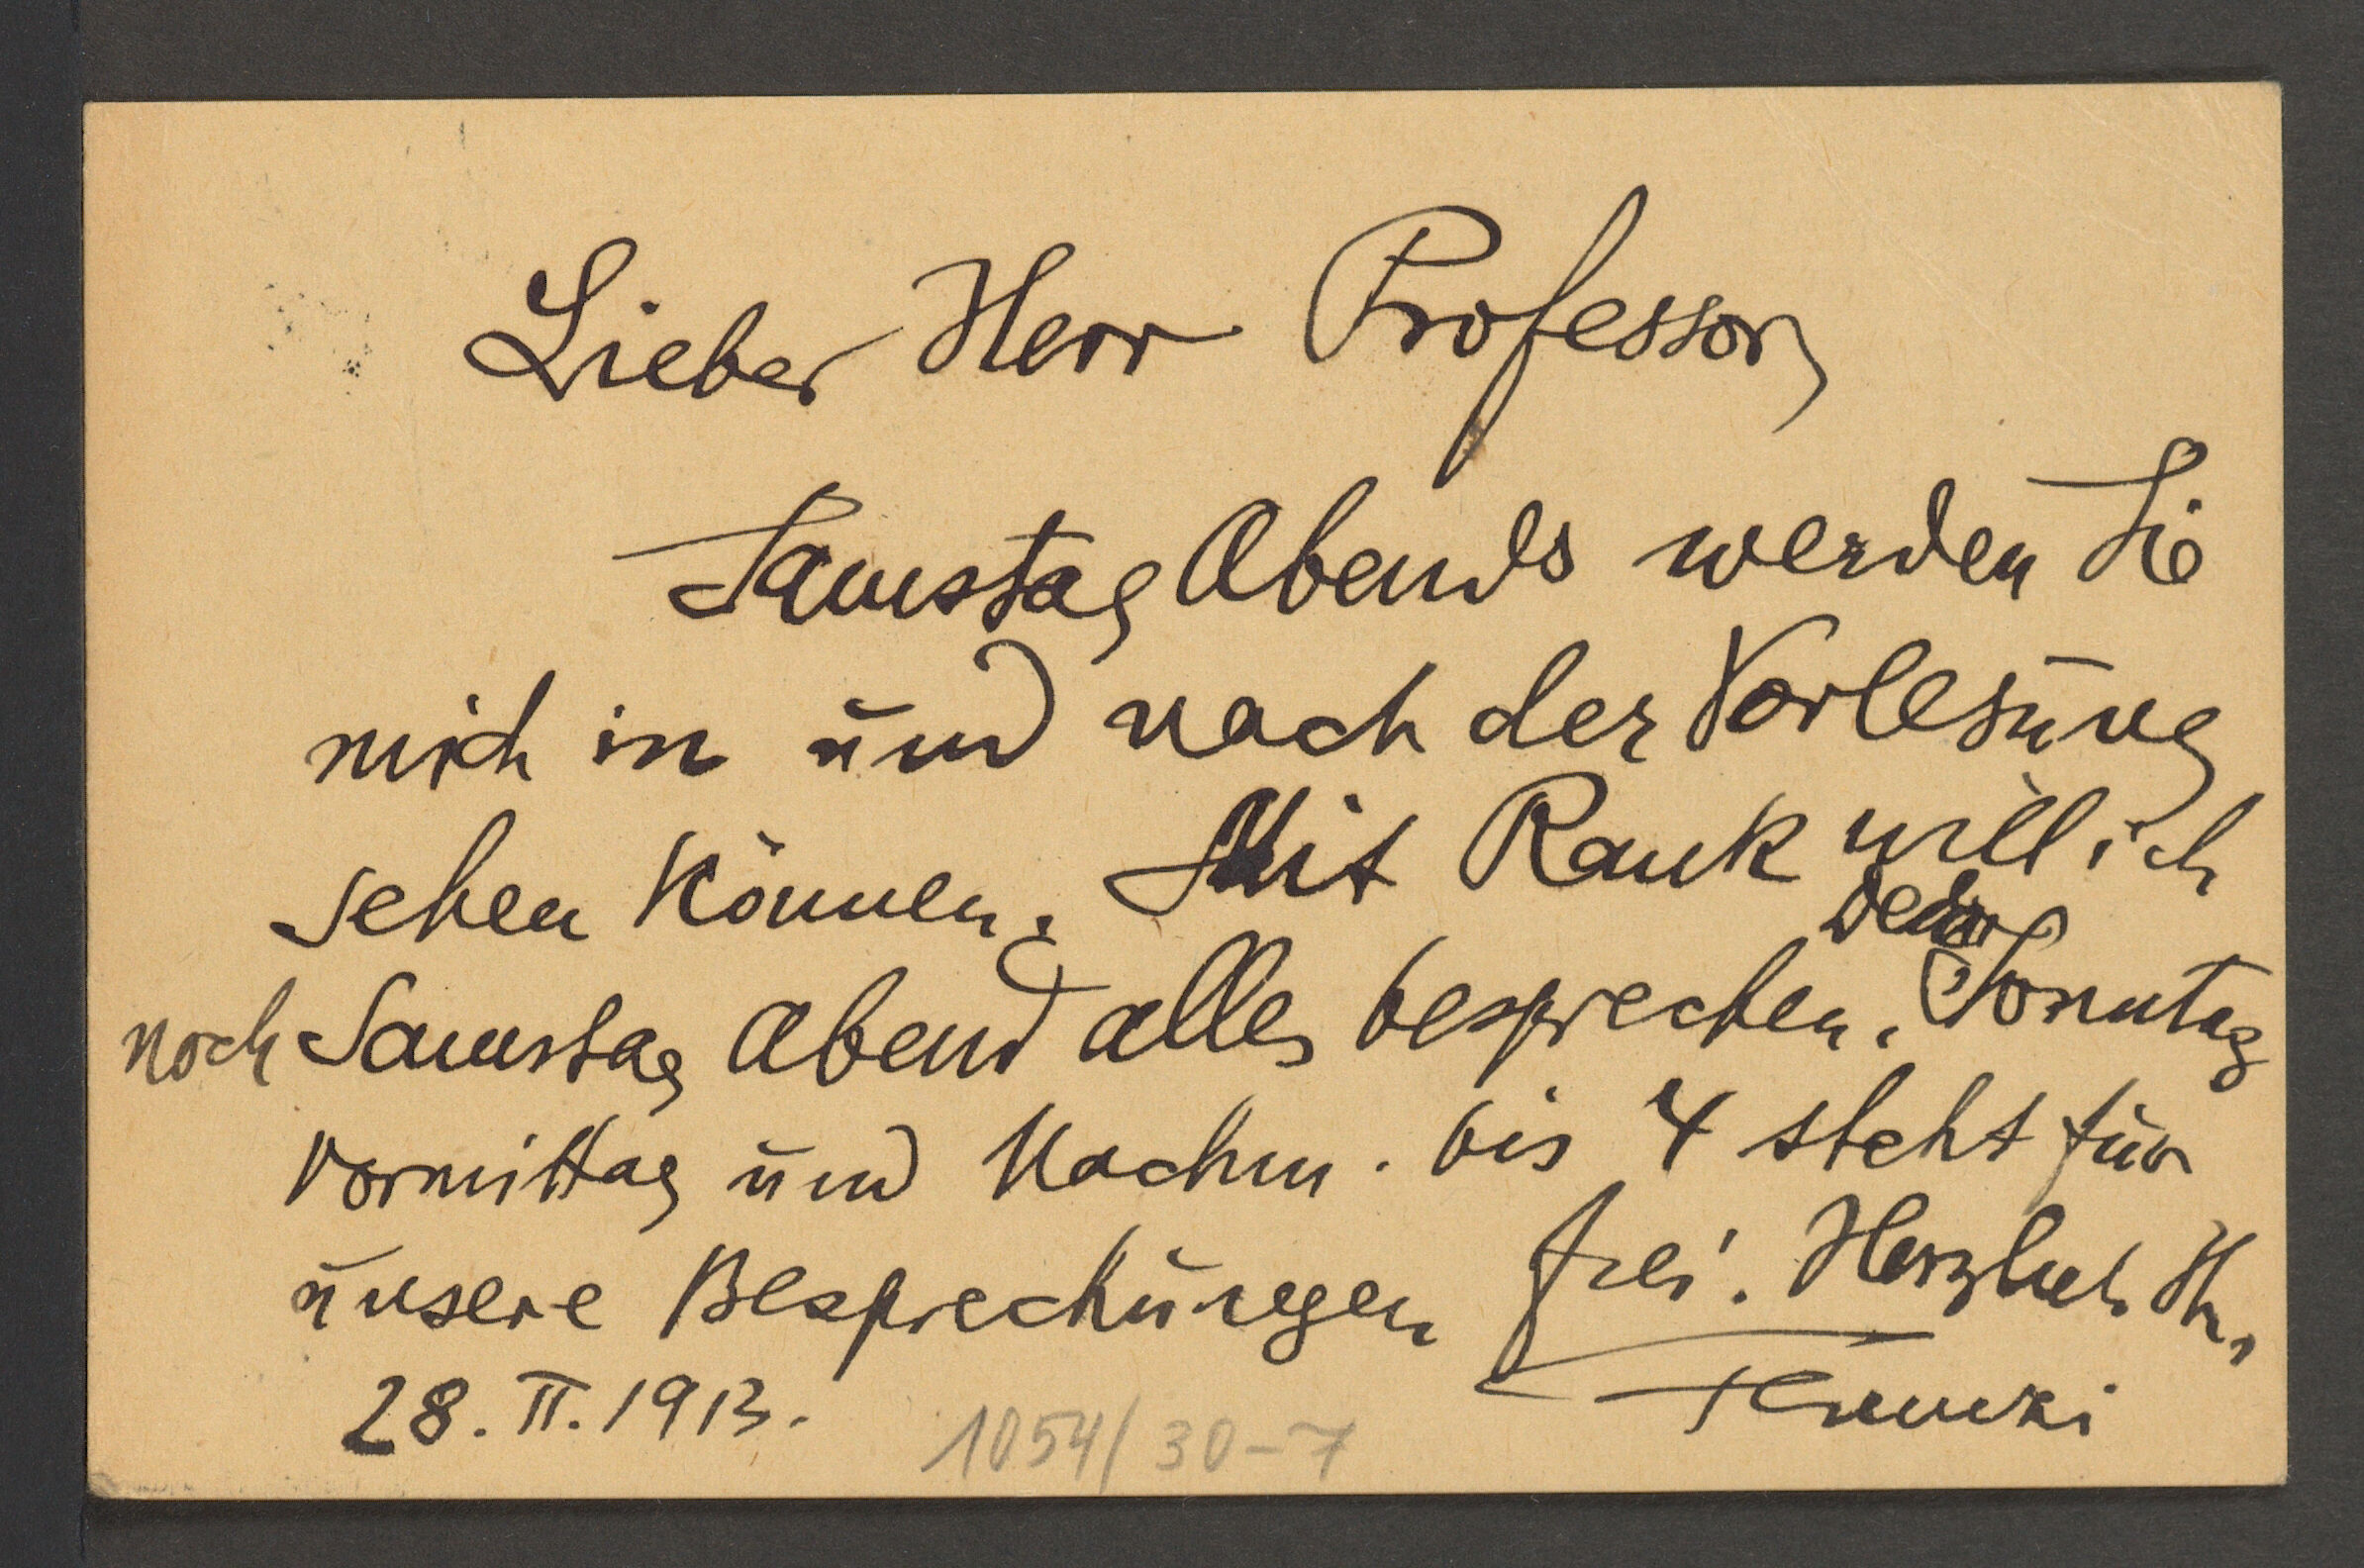 Lieber Herr Professor,
Samstag Abends werden Sie
mich in und nach der Vorlesung
sehen können. Mit Rank will ich
noch Samstag Abend alles besprechen. Sonntag
Vormittag und Nachm. bis 4 steht für
unsere Besprechungen frei. Herzlich Ihr,
Ferenczi
28. II. 1913.
1054/30-7